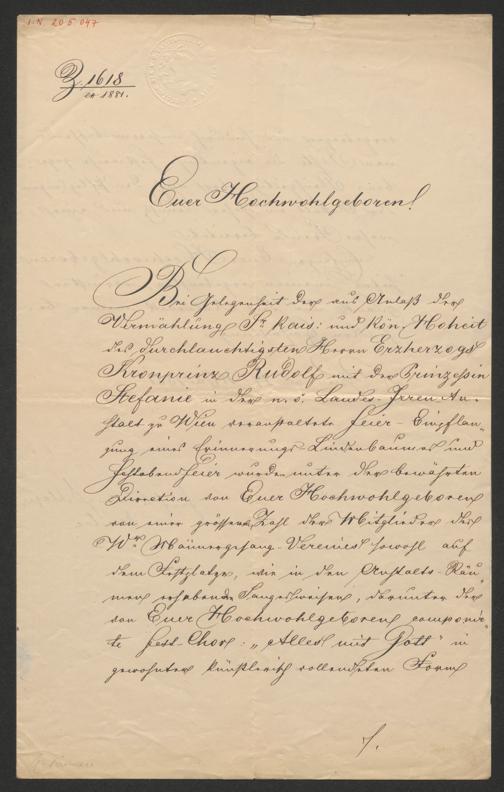 I.N. 205047
Z. 1618
ex 1881.
Euer Hochwohlgeboren!
Bei Gelegenheit der aus Anlaß der
Vermählung Sr. kais: und kön. Hoheit
des durchlauchtigsten Herrn Erzherzogs
Kronprinz Rudolf mit der Prinzessin
Stefanie in der n. ö. Landes-Irren-An-
stalt zu Wien veranstaltete Feier-Einpflan-
zung eines Erinnerungs-Lindenbaumes und
Festabend Feier wurden unter der bewährten
Direction von Euer Hochwohlgeboren
von einer grösseren Zahl der Mitglieder des
Wr. Männergesang-Vereines sowohl auf
dem Festplatze, wie in den Anstalts-Räu-
men erhebende Sangesweisen, darunter der
von Euer Hochwohlgeboren componir-
te Fest-Chor: „Alles mit Gott" in
gewohnter künstlerisch vollendeten Form